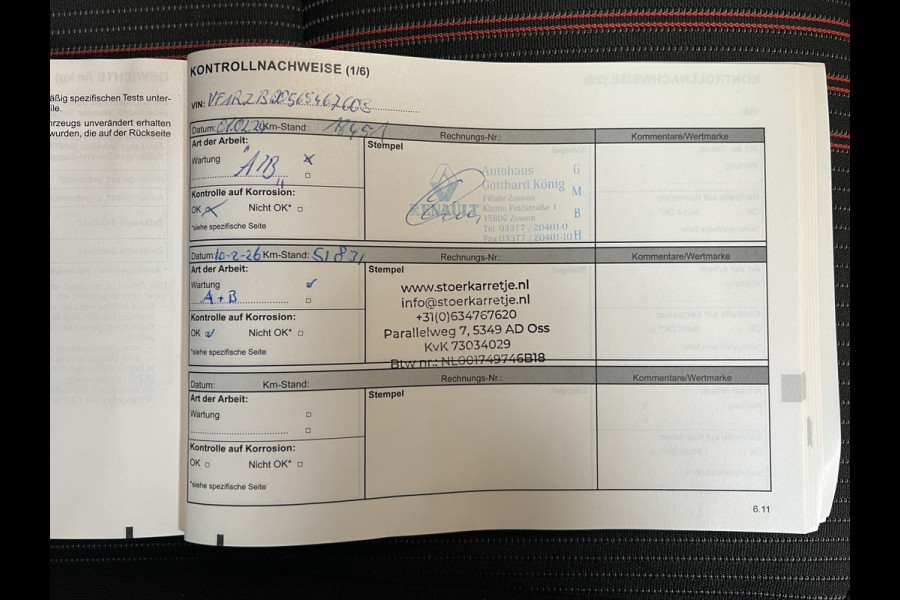 KONTROLLNACHWEISE (1/6)
äßig spezifischen Tests unter-
rzeugs unverändert erhalten
wurden, die auf der Rückseite
VIN:
Datum: Km-Stand: Rechnungs-Nr.: Kommentare/Wertmarke
Art der Arbeit: Stempel
Wartung A/B
Kontrolle auf Korrosion:
OK Nicht OK*
*siehe spezifische Seite
Autohaus
Gotthard König
Filiale Zossen
Kleine Feldstraße 1
15806 Zossen
Tel. 03377 / 20401-0
Fax 03377 / 20401-10
G
M
B
H
RENAULT
Datum: 10-2-26 Km-Stand: 51831 Rechnungs-Nr.: Kommentare/Wertmarke
Art der Arbeit: Stempel
Wartung
A + B
Kontrolle auf Korrosion:
OK Nicht OK*
*siehe spezifische Seite
www.stoerkarretje.nl
info@stoerkarretje.nl
+31(0)634767620
Parallelweg 7, 5349 AD Oss
KvK 73034029
Btw nr.: NL001749746B18
Datum: Km-Stand: Rechnungs-Nr.: Kommentare/Wertmarke
Art der Arbeit: Stempel
Wartung
Kontrolle auf Korrosion:
OK Nicht OK*
*siehe spezifische Seite
6.11